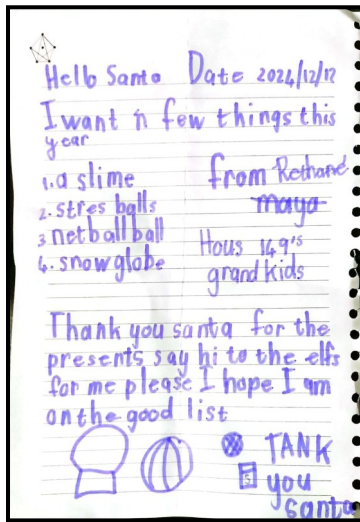 Hello Santa Date 2024/12/12
I want a few things this
year
1. a slime
2. stres balls
3 netball ball
4. snow globe
from Rethane
maya
Hous 149's
grand kids
Thank you santa for the
presents say hi to the elfs
for me please I hope I am
on the good list
TANK
you
santa